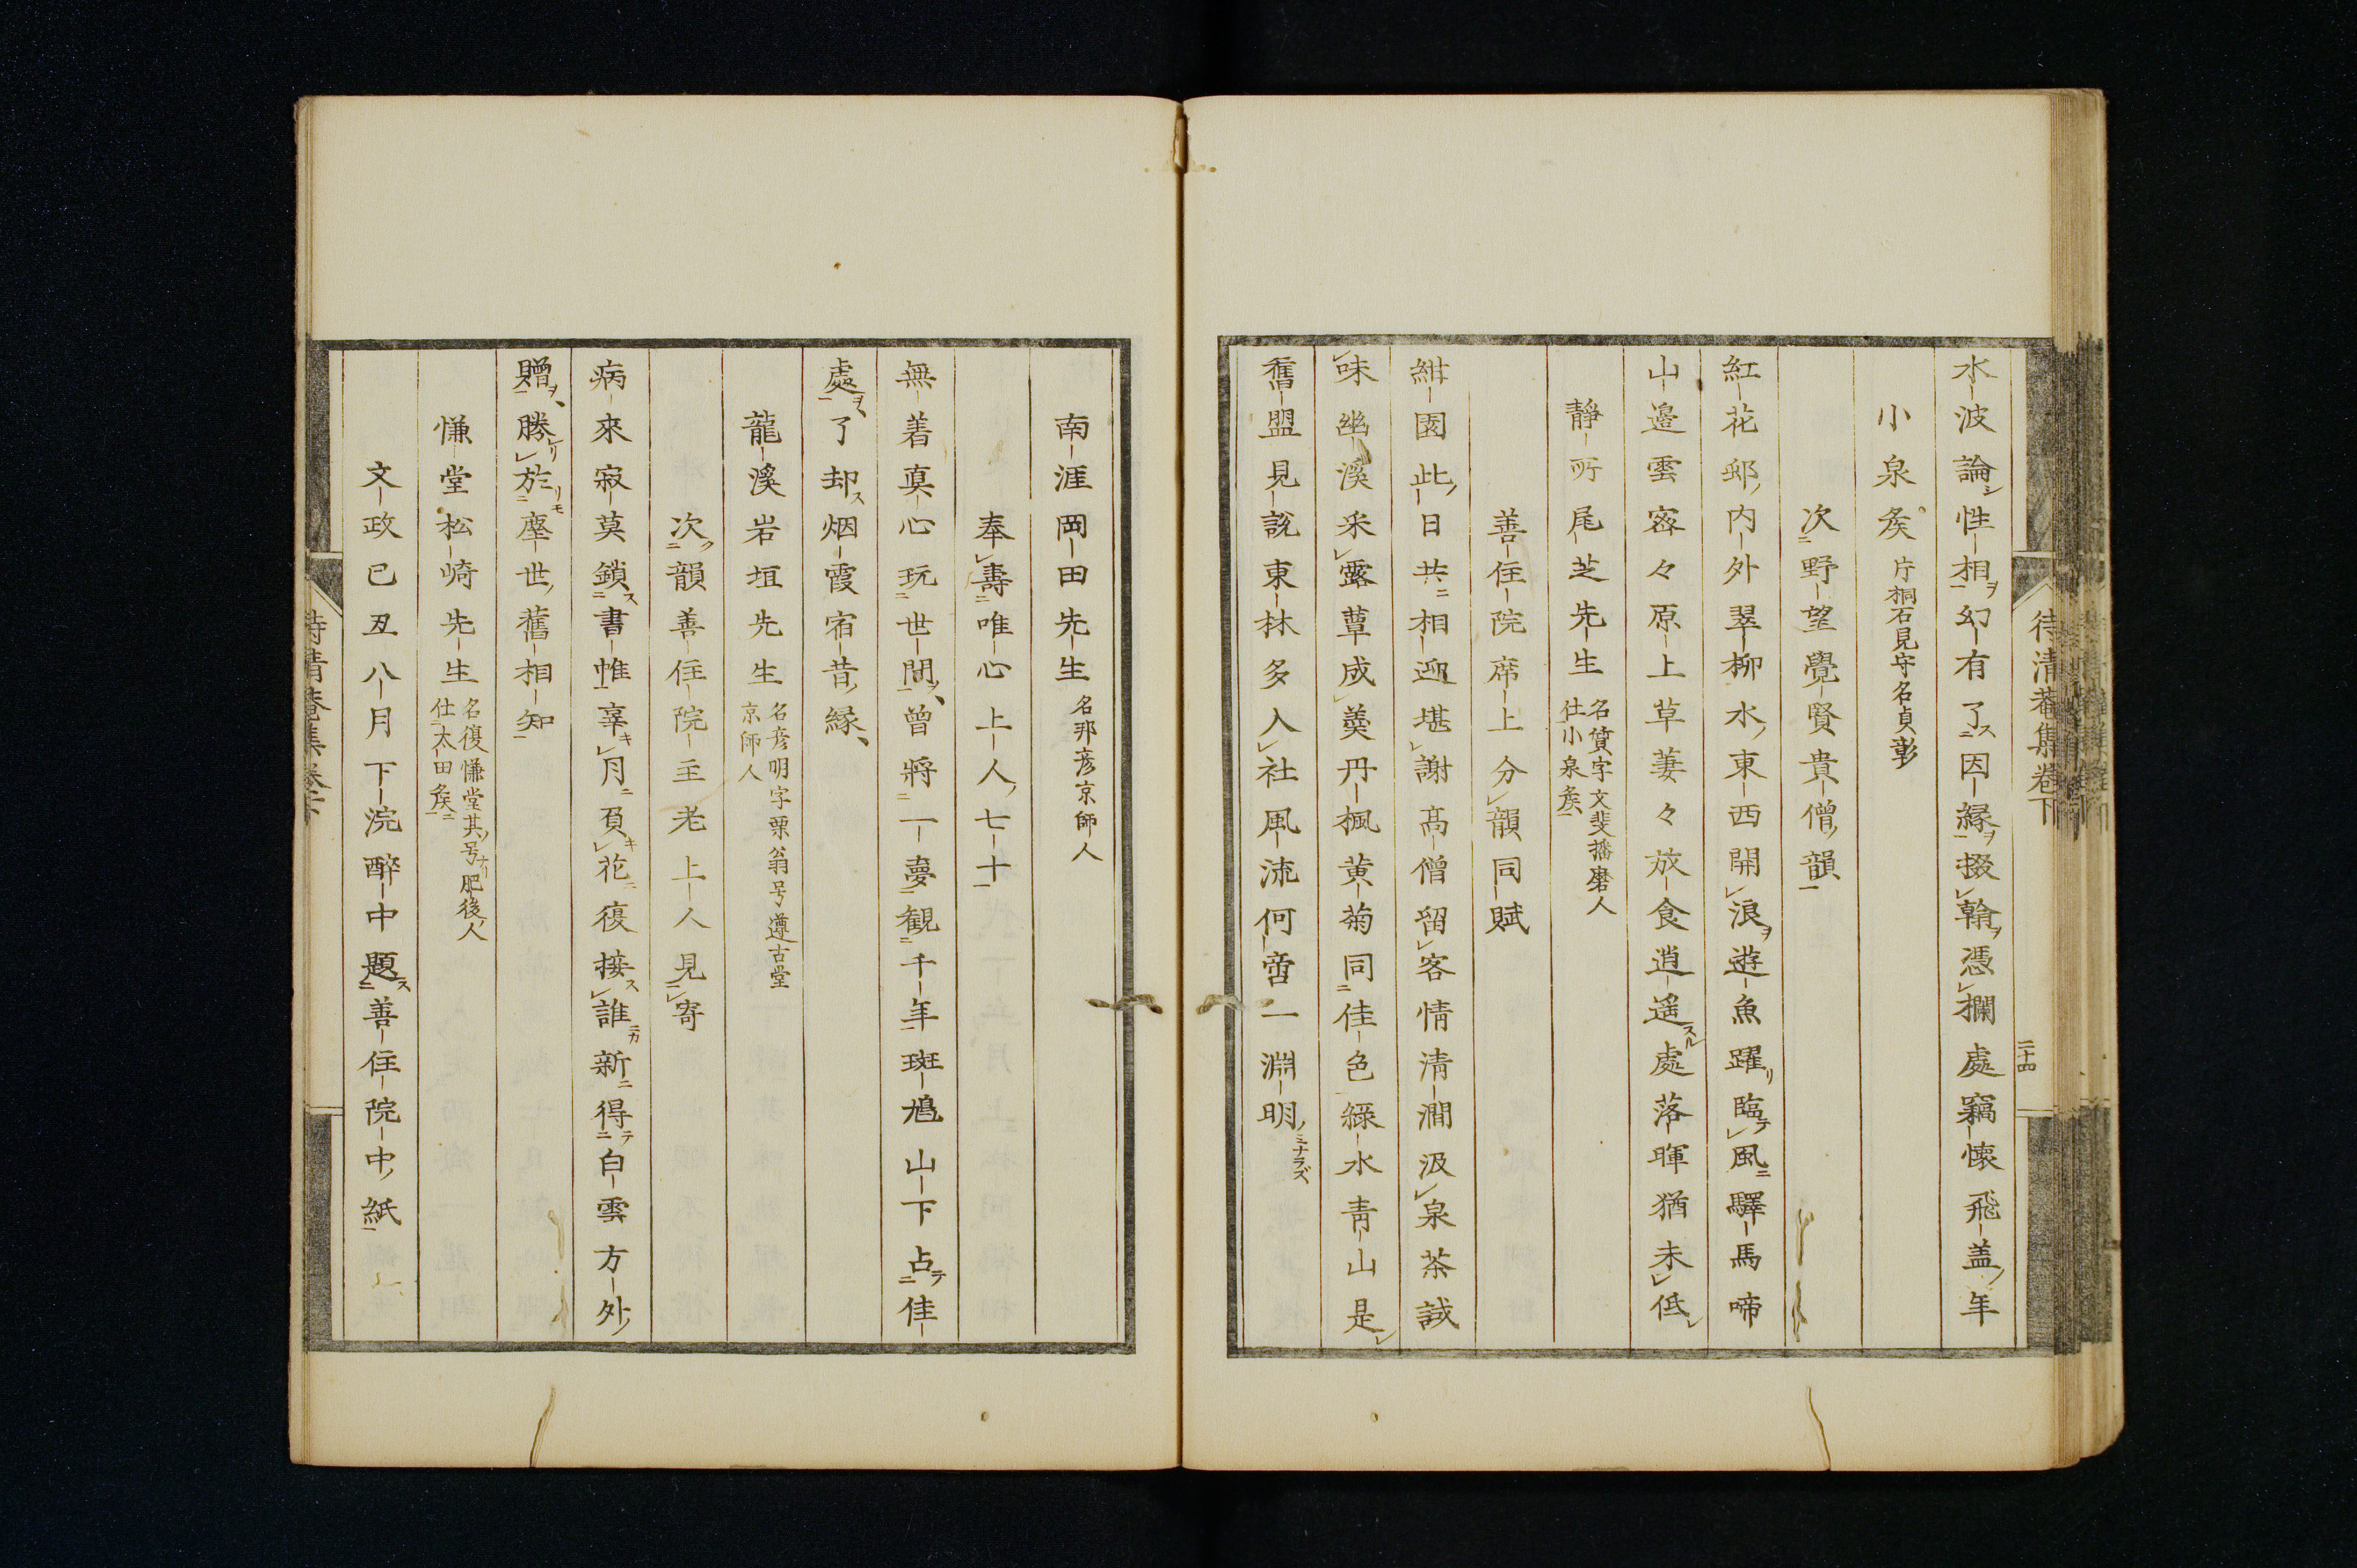 待清菴集卷下
二十四
水波論性相幻有了因縁掇翰憑欄處竊懷飛盖年
小泉矦 片桐石見守名貞彰
次野望覺賢貴僧韻
紅花邨内外翠柳水東西開浪遊魚躍臨風驛馬啼
山邉雲密々原上草萋々放食逍遥處落暉猶未低
静所尾芝先生 名質字文斐播磨人
仕小泉矦
善住院席上分韻同賦
紺園此日共相迎堪謝髙僧留客情清澗汲泉茶誠
味幽溪采露蕈成羮丹楓黄菊同佳色綠水青山是
舊盟見說東林多入社風流何啻一淵明
南涯岡田先生 名邦彦京師人
奉壽唯心上人七十
無着真心玩世間曽將一夢観千年斑鳩山下占佳
處了却烟霞宿昔縁
龍溪岩垣先生 名彦明字栗翁号遵古堂
京師人
次韻善住院主老上人見寄
病來寂莫鎖書帷辜月負花復接誰新得白雲方外
贈勝於塵世舊相知
慊堂松崎先生 名復慊堂其号肥後人
仕太田矦
文政己丑八月下浣醉中題善住院中紙
待清菴集卷下